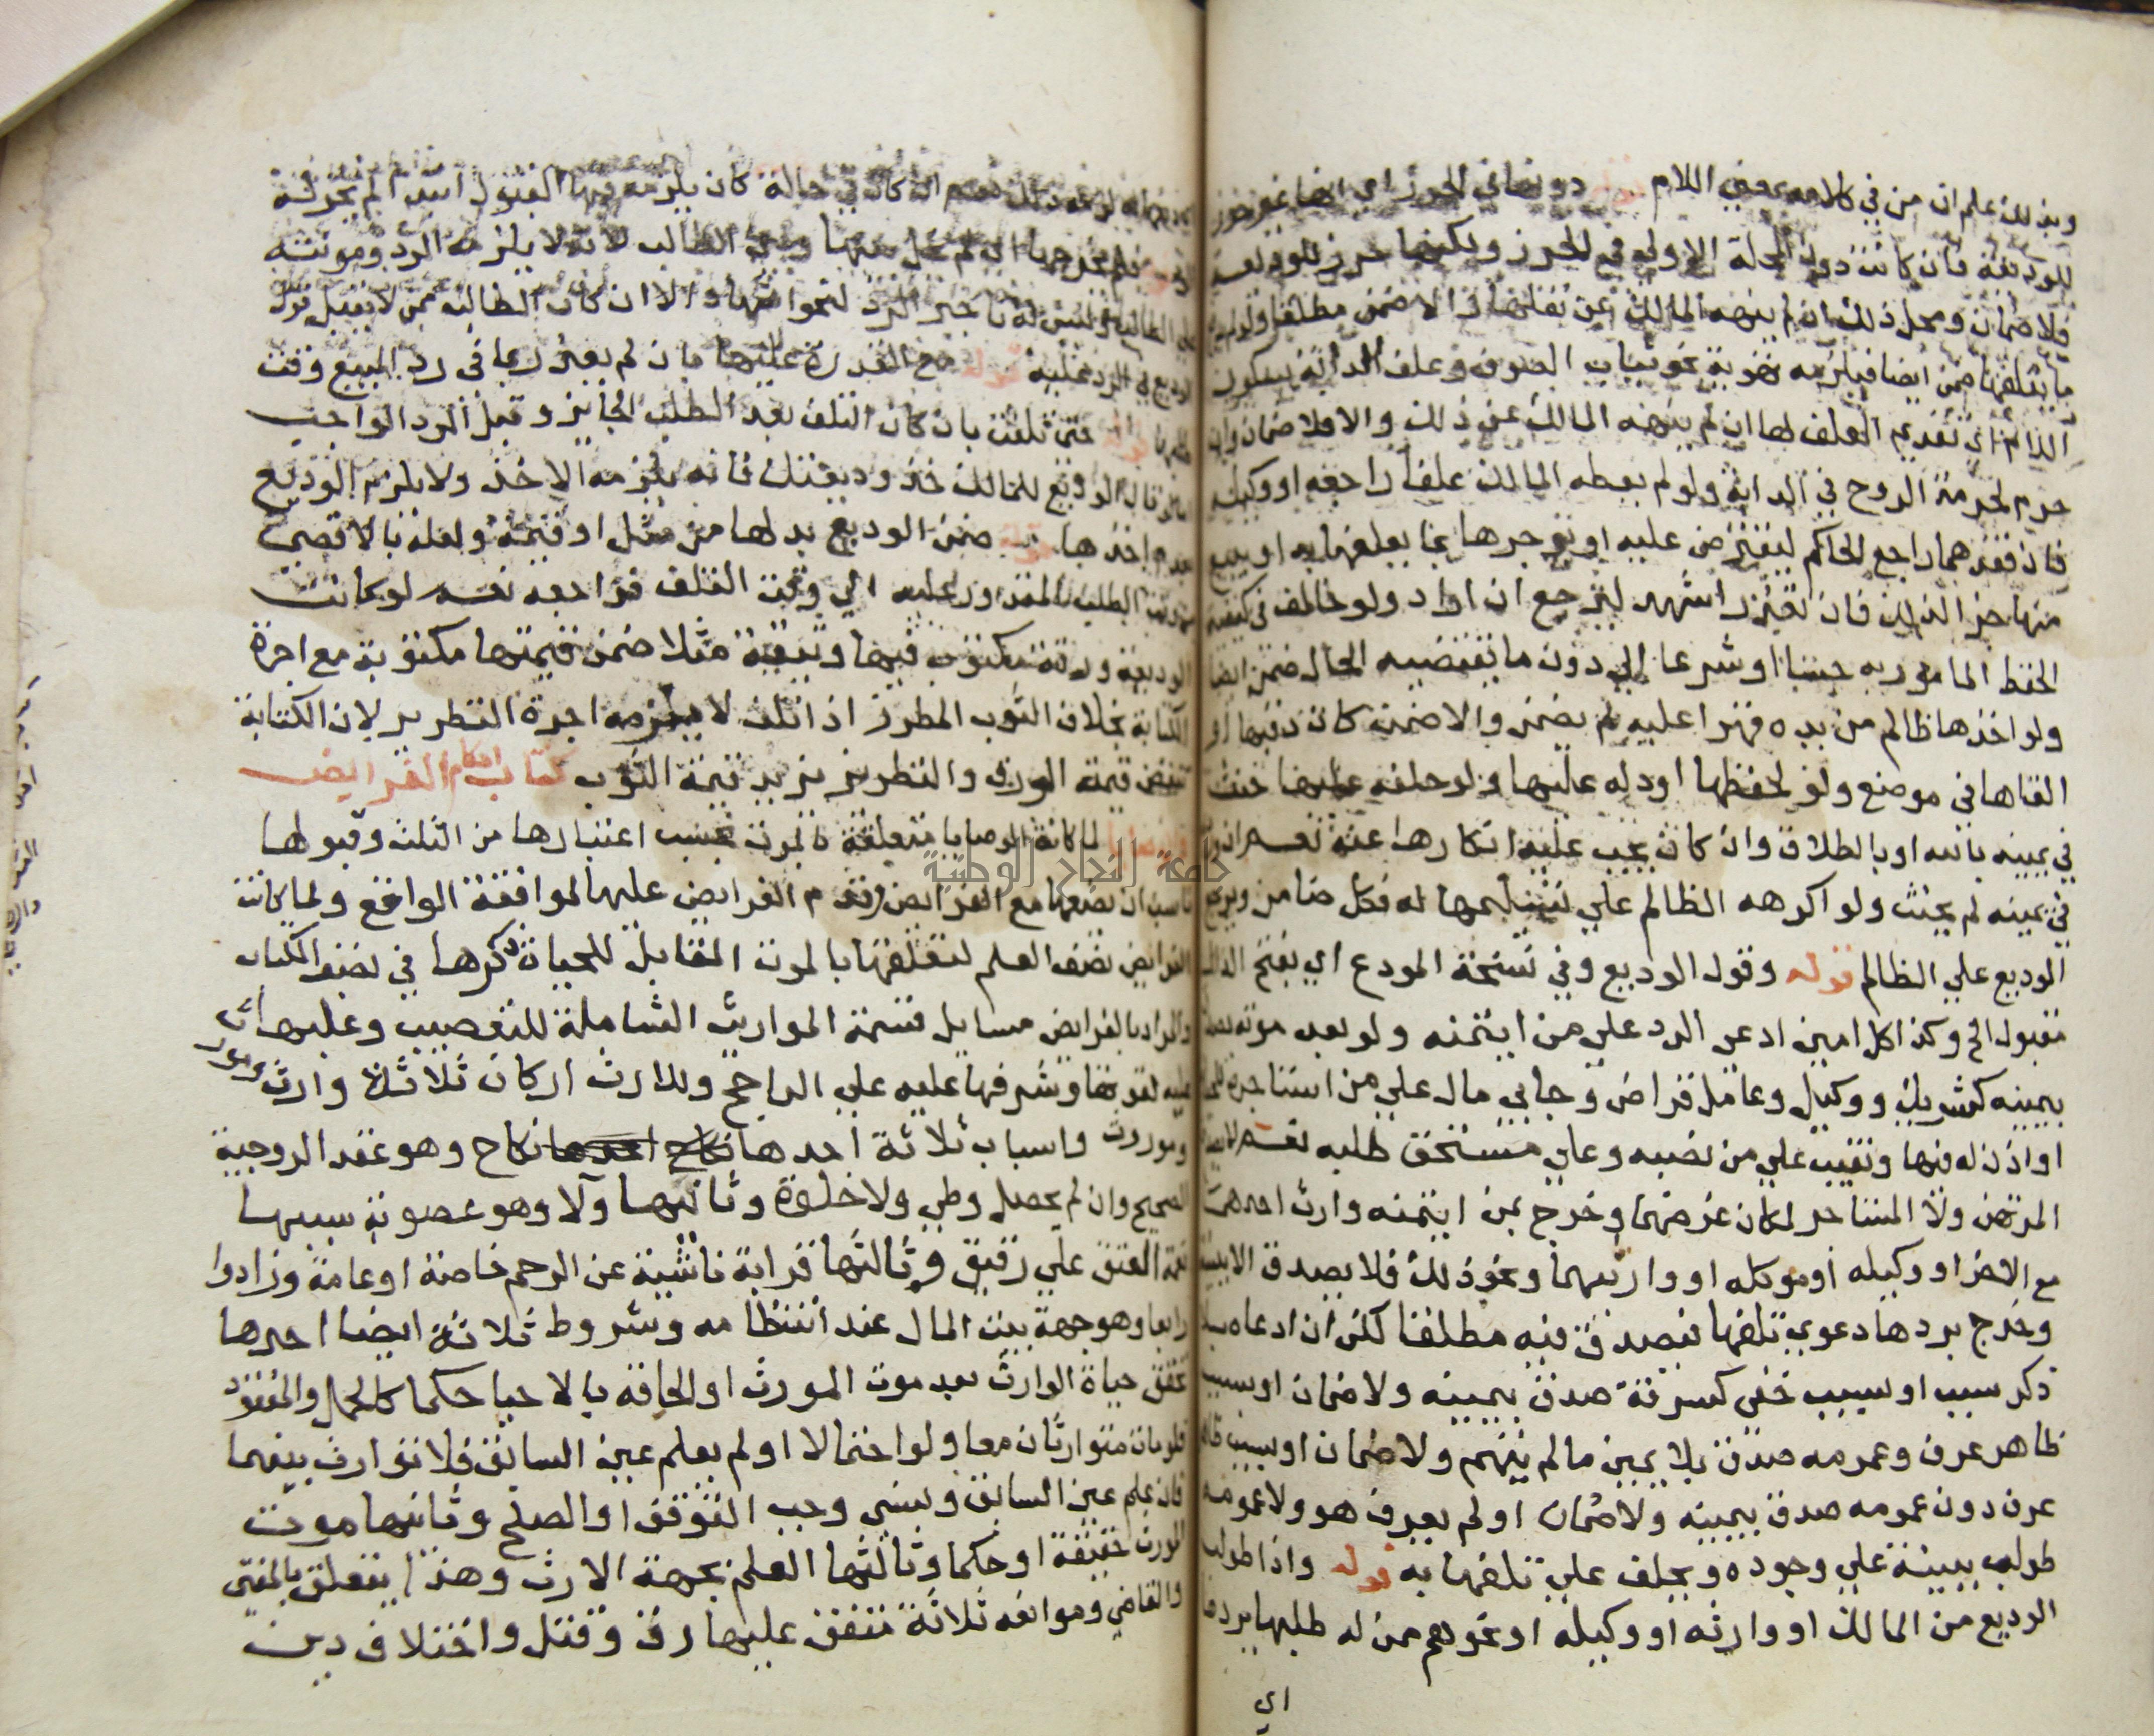 وبذلك علم ان من في كلامه بمعني اللام دونها في الحرز اي انها غير حرز
للوديعة فان كانت دون المحلة الاولي في الحرز ولكنها حرز للوديعة
فلا ضمان ومحل ذلك ان لم ينهه المالك عن نقلها والا ضمن مطلقا
ما يتلفها ضمن ايضا فيلزمه تهوية نحو ثياب الصوف وعلف الدابة بسكون
اللام اي تقديم العلف لها ان لم ينهه المالك عن ذلك والا فلا ضمان وان
حرم لحرمة الروح في الدابة ولو لم يعطه المالك علفا راجعه او وكيله
فان فقدهما راجع الحاكم ليقترض عليه او يؤجرها بما يعلفها به او يبيع
منها جزا لذلك فان تعذر اشهد ليرجع ان اراد ولو خالف في كيفية
الحفظ المامور به حسا او شرعا الي دون ما تقتضيه الحال ضمن ايضا
ولو اخذها ظالم من يده قهرا عليه لم يضمن والا ضمن كان دفعها او
القاها في موضع ولو لحفظها او دله عليها ولو حلفه عليها حنث
في يمينه بالله او بالطلاق وان كان يجب عليه انكارها عنه نعم ان
في يمينه لم يحنث ولو اكرهه الظالم علي تسليمها له فكل ضامن ويرجع
الوديع علي الظالم قوله وقول الوديع وفي نسخة المودع اي بفتح الدال
مقبول الخ وكذا كل امين ادعي الرد علي من ايتمنه ولو بعد موته
بيمينه كشريك ووكيل وعامل قراض وجابي مال علي من استاجره
او اذن له فيها ونقيب علي من نصبه وعلي مستحق طلبه نعم
المرتهن ولا المستاجر لمكان غرضهما وخرج بمن ايتمنه وارث احدهما
مع الاخر او وكيله او موكله او وارثيهما ونحو ذلك فلا يصدق الا ببينة
وخرج بردها دعوي تلفها فيصدق فيه مطلقا لكن ان ادعاه بلا
ذكر سبب او بسبب خفي كسرقة صدق بيمينه ولا ضمان او بسبب
ظاهر عرف وعمومه صدق بلا يمين ما لم يتهم ولا ضمان او بسبب
عرف دون عمومه صدق بيمينه ولا ضمان او لم يعرف هو ولا عمومه
طولب ببينة علي وجوده ويحلف علي تلفها به قوله واذا طولب
الوديع من المالك او وارثه او وكيله او نحوهم ممن له طلبها بردها
اي
كان في حالة كان يلزمه فيها القبول
فلم يخرجها اي لم يخل بينها وبين الطالب لانه لا يلزمه الرد ومونته
علي الطالب وليس له تاخير الرد لنحو اشهاد الا ان كان الطالب ممن لا يقبل قول
الوديع في الرد عليه قوله مع القدرة عليها بان لم يعذر بما في رد المبيع وقت
حتي تلفت بان كان التلف بعد الطلب الجايز وقبل الرد الواجب
قال الوديع للمالك خذ وديعتك فانه يلزمه الاخذ ولا يلزم الوديع
اخذها قوله ضمن الوديع بدلها من مثل او قيمة ولعله بالاقصي
من وقت الطلب المقدور عليه الي وقت التلف فراجعه نعم لو كانت
الوديعة ورقة مكتوب فيها وتبقية مثلا ضمن قيمتها مكتوبة مع اجرة
الكتابة بخلاف الثوب المطرز اذا تلف لا يلزمه اجرة التطريز لان الكتابة
تنقص قيمة الورق والتطريز يزيد قيمة الثوب كتاب احكام الفرايض
لما كانت الوصايا متعلقة بالموت بحسب اعتبارها من الثلث وقبولها
ناسب ان يضعها مع الفرايض وقدم الفرايض عليها لموافقة الواقع ولما كانت
الفرايض نصف العلم لتعلقها بالموت المقابل للحياة ذكرها في نصف الكتاب
والمراد بالفرايض مسايل قسمة المواريث الشاملة للتعصيب وعليها
عليه لقوتها وشرفها عليه علي الراجح وللارث اركان ثلاثة وارث
وموروث واسباب ثلاثة احدها نكاح وهو عقد الزوجية
الصحيح وان لم يحصل وطي ولا خلوة وثانيها ولا وهو عصوبة سببها
نعمة العتق علي رقيق وثالثها قرابة ناشية عن الرحم خاصة او عامة وزادوا
رابعا وهو جهة بيت المال عند انتظامه وشروط ثلاثة ايضا احدها
تحقق حياة الوارث بعد موت المورث او الحاقه بالاحيا حكما كالحمل والمفقود
فلو مات متوارثان معا ولو احتمالا او لم يعلم عين السابق فلا توارث بينهما
فان علم عين السابق ونسي وجب التوقف او الصلح وثانيها موت
المورث حقيقة او حكما وثالثها العلم بجهة الارث وهذا يتعلق بالمفتي
والقاضي وموانعه ثلاثة متفق عليها رق وقتل واختلاف دين
جامعة النجاح الوطنية